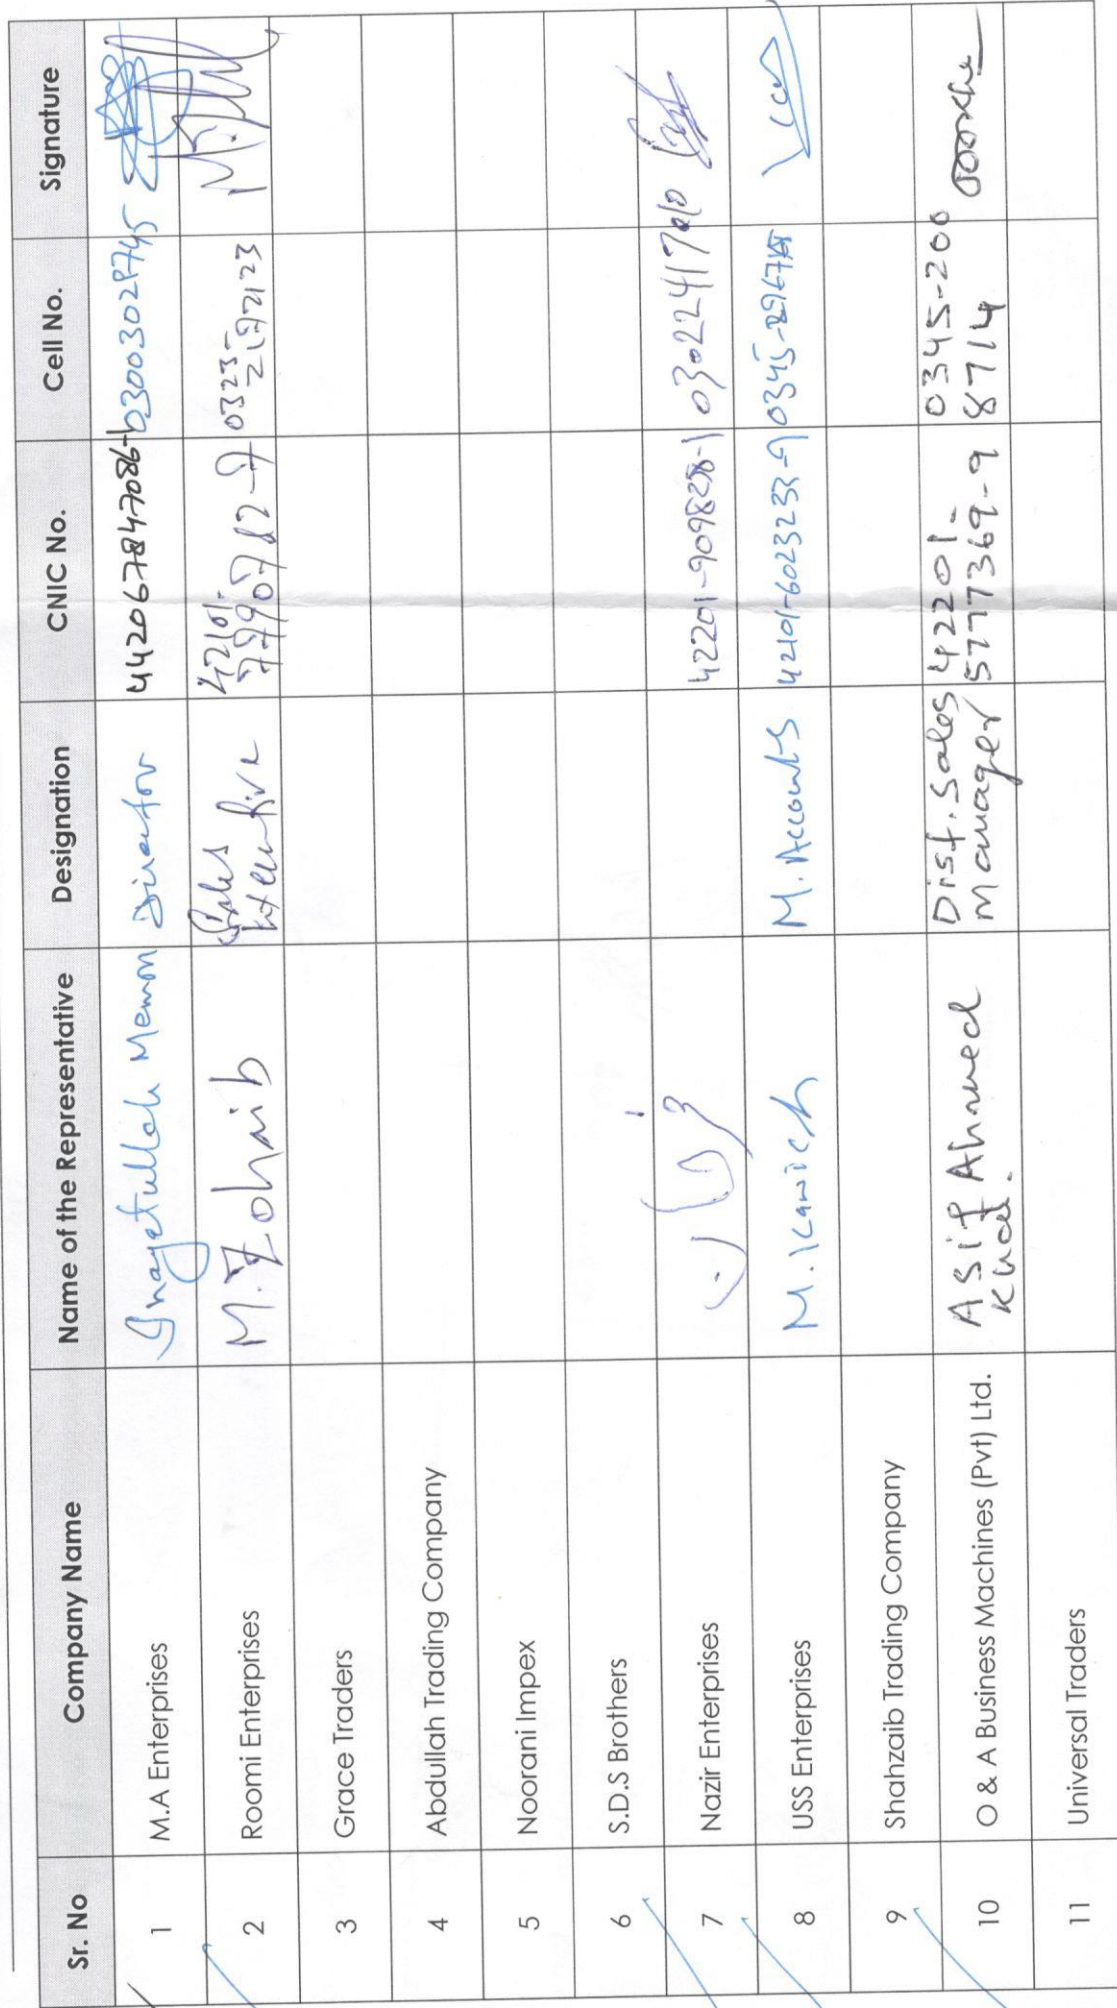 Sr. No Company Name Name of the Representative Designation CNIC No. Cell No. Signature
1 M.A Enterprises Inayatullah Memon Director 442067847086-1 03003028745
2 Roomi Enterprises M. Zohaib Sales Executive 42101- 0323
2197123
3 Grace Traders
4 Abdullah Trading Company
5 Noorani Impex
6 S.D.S Brothers
7 Nazir Enterprises 42201-9098258-1
8 USS Enterprises M. Accounts 42101-6023233-9
9 Shahzaib Trading Company
10 O & A Business Machines (Pvt) Ltd. Asif Ahmed Dist. Sales 42201- 0345-200
Khan. Manager 5777369-9 8714
11 Universal Traders